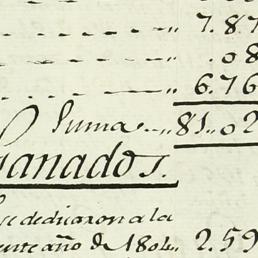 7.87
.08
6.76
Suma 81.02
Ganados.
se dedicaron a la
ente año de 1804 2.59